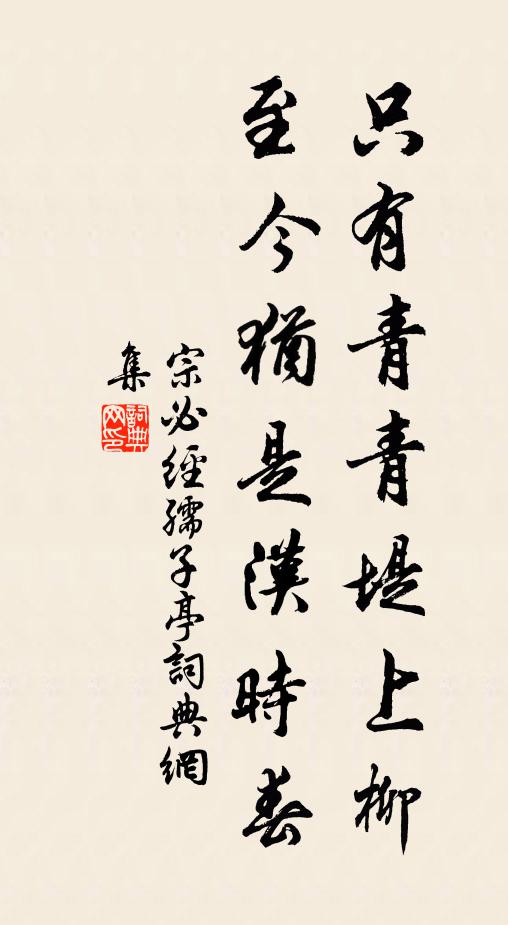 只有青青堤上柳
至今猶是漢時春
宗必經孺子亭詞典網
集
詞典
网印